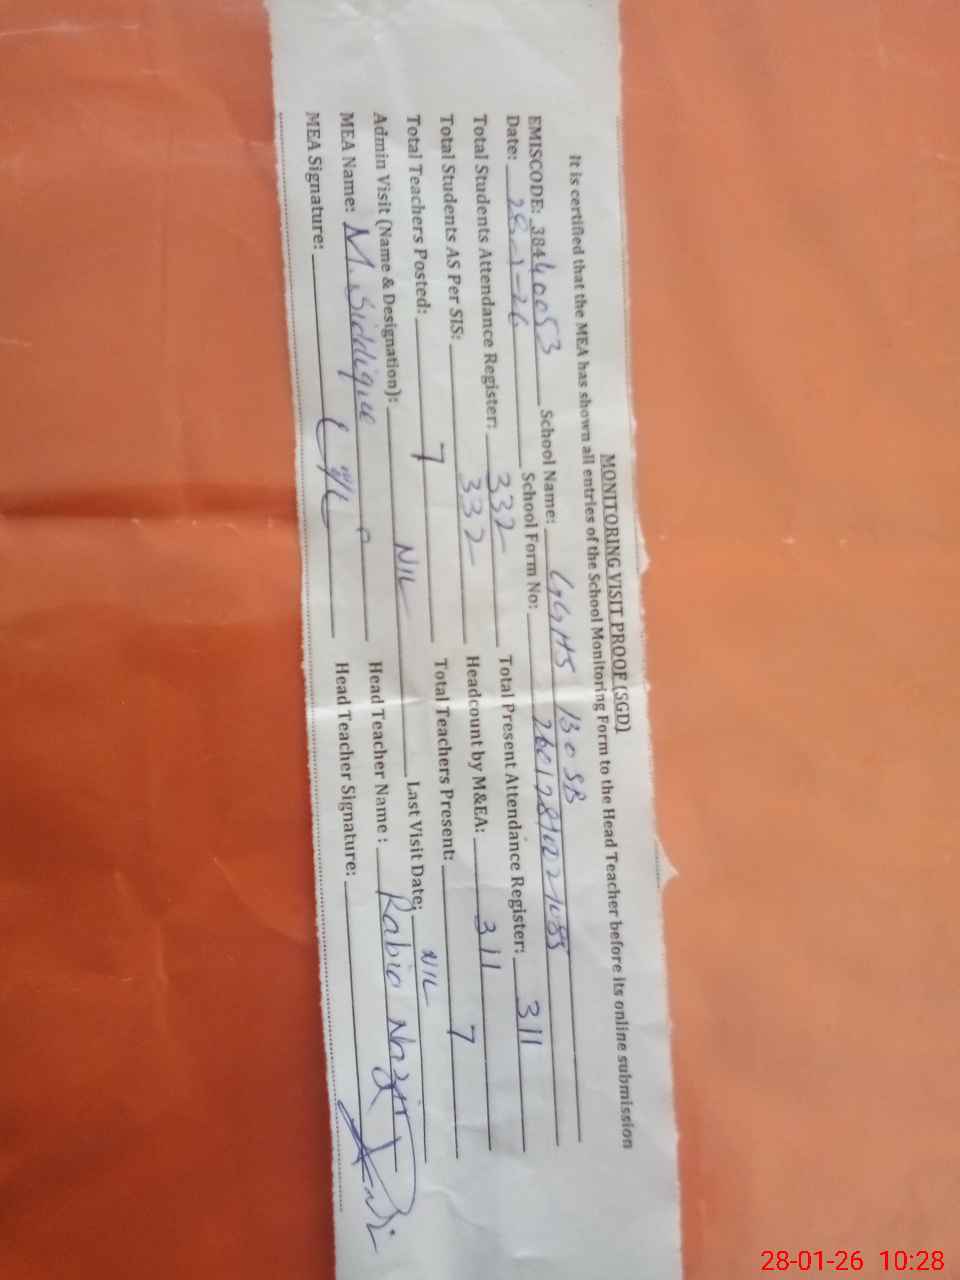 MONITORING VISIT PROOF (SGD)
It is certified that the MEA has shown all entries of the School Monitoring Form to the Head Teacher before its online submission
EMISCODE: 38440053 School Name: GGHS 130 SB
Date: 28-1-26 School Form No:
Total Students Attendance Register: 332 Total Present Attendance Register: 311
Total Students AS Per SIS: 332 Headcount by M&EA: 311
Total Teachers Posted: 7 Total Teachers Present: 7
Admin Visit (Name & Designation): NIL Last Visit Date: NIL
MEA Name: M. Siddique Head Teacher Name : Rabia
MEA Signature: Head Teacher Signature:
28-01-26 10:28